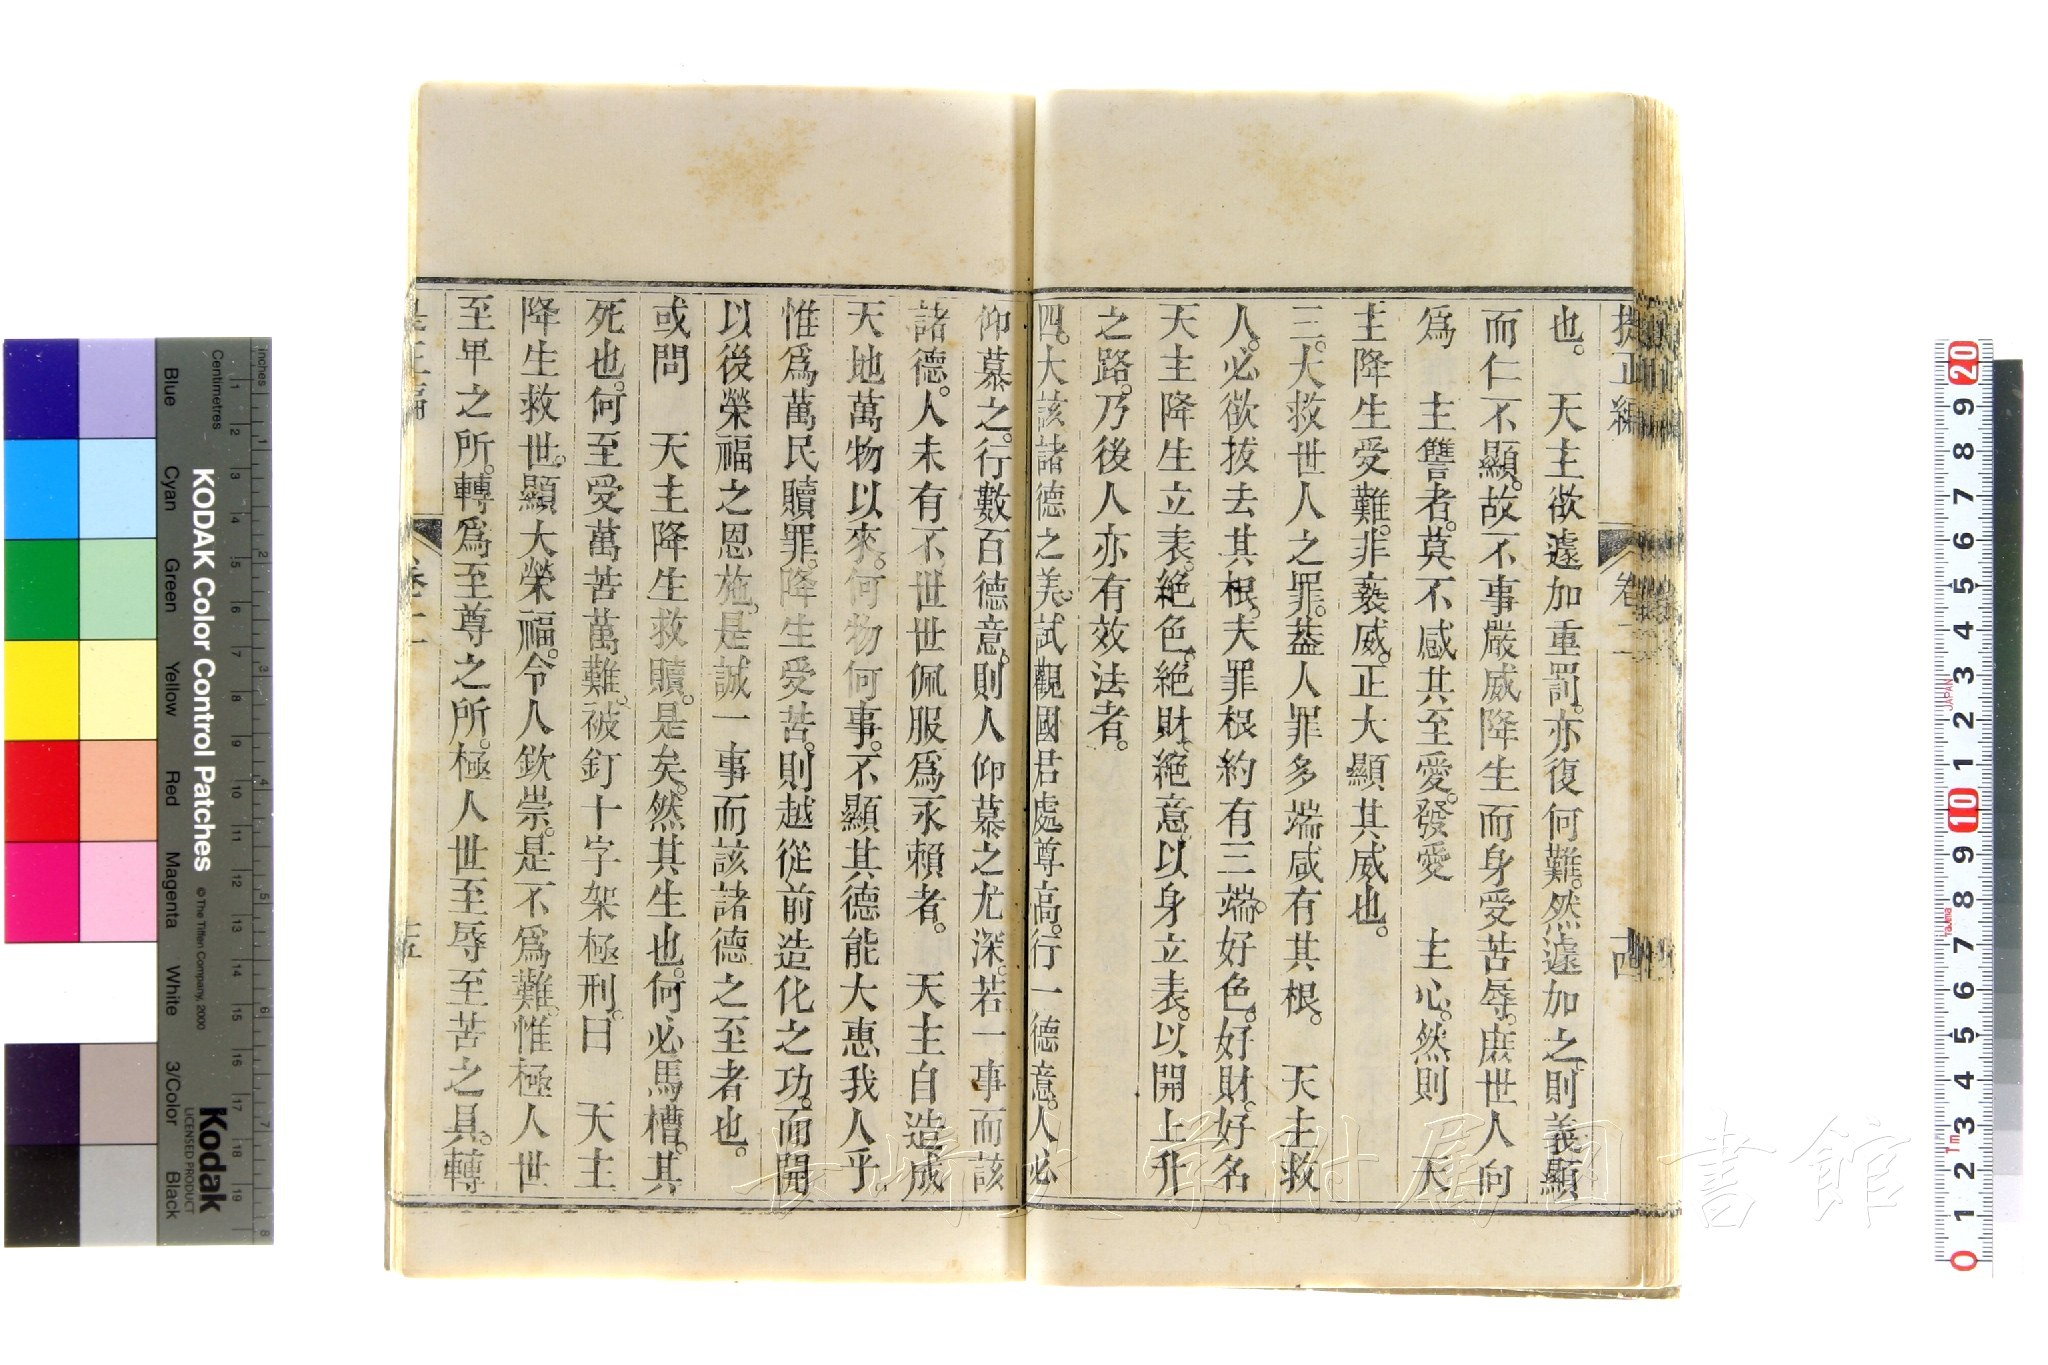 提正編 卷二 十四
也。 天主欲遽加重罰。亦復何難。然遽加之。則義顯
而仁不顯。故不事嚴威降生而身受苦辱。庶世人向
爲 主讐者。莫不感其至愛。發愛 主心。然則 天
主降生受難。非褻威。正大顯其威也。
三。大救世人之罪。葢人罪多端咸有其根。 天主救
人。必欲拔去其根。大罪根約有三端。好色。好財。好名
天主降生立表。絕色。絕財。絕意。以身立表。以開上升
之路。乃後人亦有效法者。
四。大該諸德之美。試觀國君處尊高。行一德意。人必
仰慕之。行數百德意。則人仰慕之尤深。若一事而該
諸德。人未有不世世佩服爲永賴者。 天主自造成
天地萬物以來。何物何事。不顯其德能大惠我人乎。
惟爲萬民贖罪。降生受苦。則越從前造化之功。而開
以後榮福之恩施。是誠一事而該諸德之至者也。
或問 天主降生救贖。是矣。然其生也。何必馬槽。其
死也。何至受萬苦萬難。被釘十字架極刑。曰 天主
降生救世。顯大榮福。令人欽崇。是不爲難。惟極人世
至卑之所。轉爲至尊之所。極人世至辱至苦之具。轉
提正編 卷二 十五
KODAK Color Control Patches
© The Tiffen Company, 2000
Kodak
LICENSED PRODUCT
Blue Cyan Green Yellow Red Magenta White 3/Color Black
Centimetres
inches
JAPAN
長崎大学附属図書館